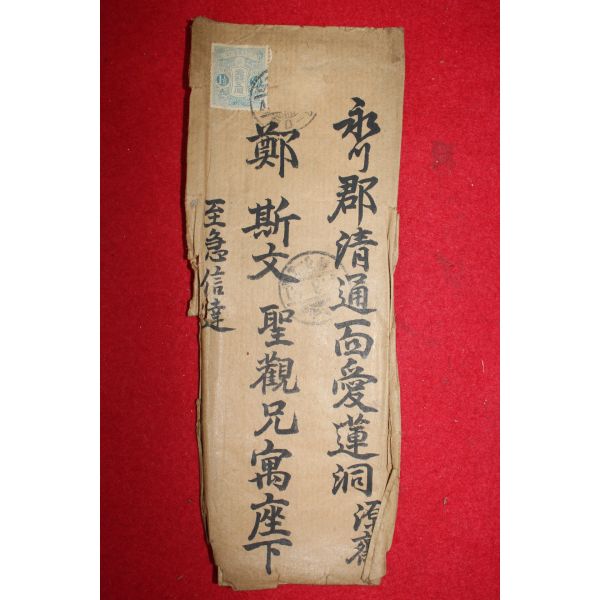 永川郡清通面愛蓮洞
鄭 斯文 聖觀兄寓座下
至急信達